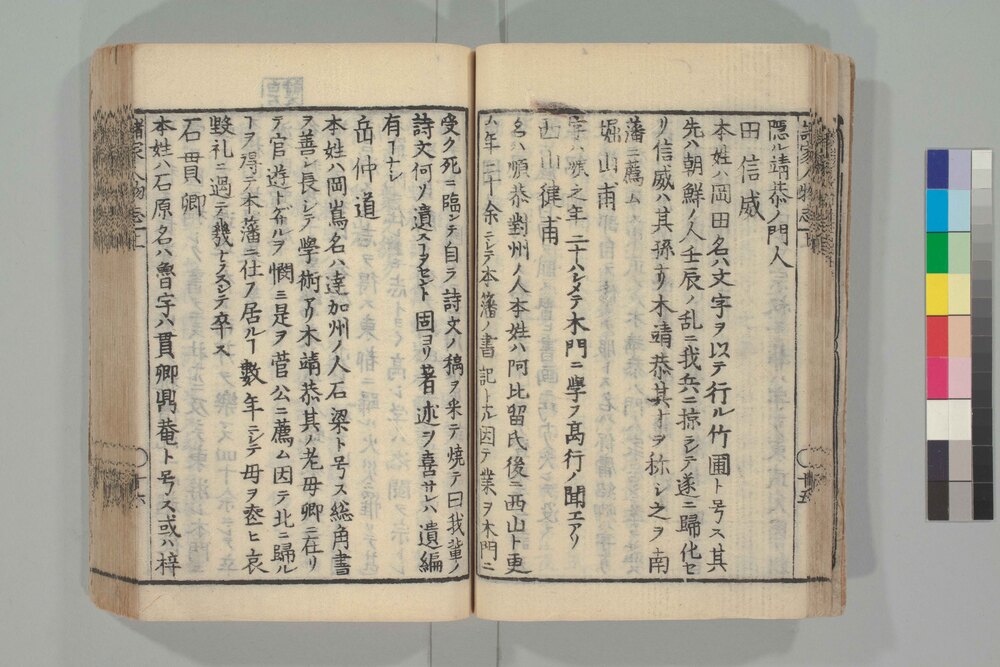 隠ル靖恭ノ門人
田信威
本姓ハ岡田名ハ文字ヲ以テ行ル竹圃ト号ス其
先ハ朝鮮ノ人壬辰ノ乱ニ我兵ニ掠シテ遂ニ歸化セ
リ信威ハ其孫ナリ木靖恭其才ヲ称シ之ヲ南
藩ニ薦ム
堀山甫
之年二十ハシメテ木門ニ學フ髙行ノ聞エアリ
西山健甫
名ハ順恭對州ノ人本姓ハ阿比留氏後ニ西山ト更
ム年二十余ニシテ本藩ノ書記ト成因テ業ヲ木門ニ
受ク死ニ臨ンテ自ラ詩文ノ稿ヲ采テ焼テ曰我輩ノ
詩文何ソ遺スヿヲセント固ヨリ著述ヲ喜サレハ遺編
有ヿナシ
岳仲道
本姓ハ岡嶌名ハ達加州ノ人石梁ト号ス総角書
ヲ善シ長シテ學術アリ木靖恭其ノ老母卿ニ在リ
テ官遊トケルヲ憫ニ是ヲ菅公ニ薦ム因テ北ニ歸ル
ヿヲ得テ本藩ニ仕フ居ルヿ數年ニシテ母ヲ喪ヒ哀
毀礼ニ過テ幾トクスンテ卒ス
石貫卿
本姓ハ石原名ハ魯字ハ貫卿鼎菴ト号ス或ハ梓
諸家人物志上
十五
十六